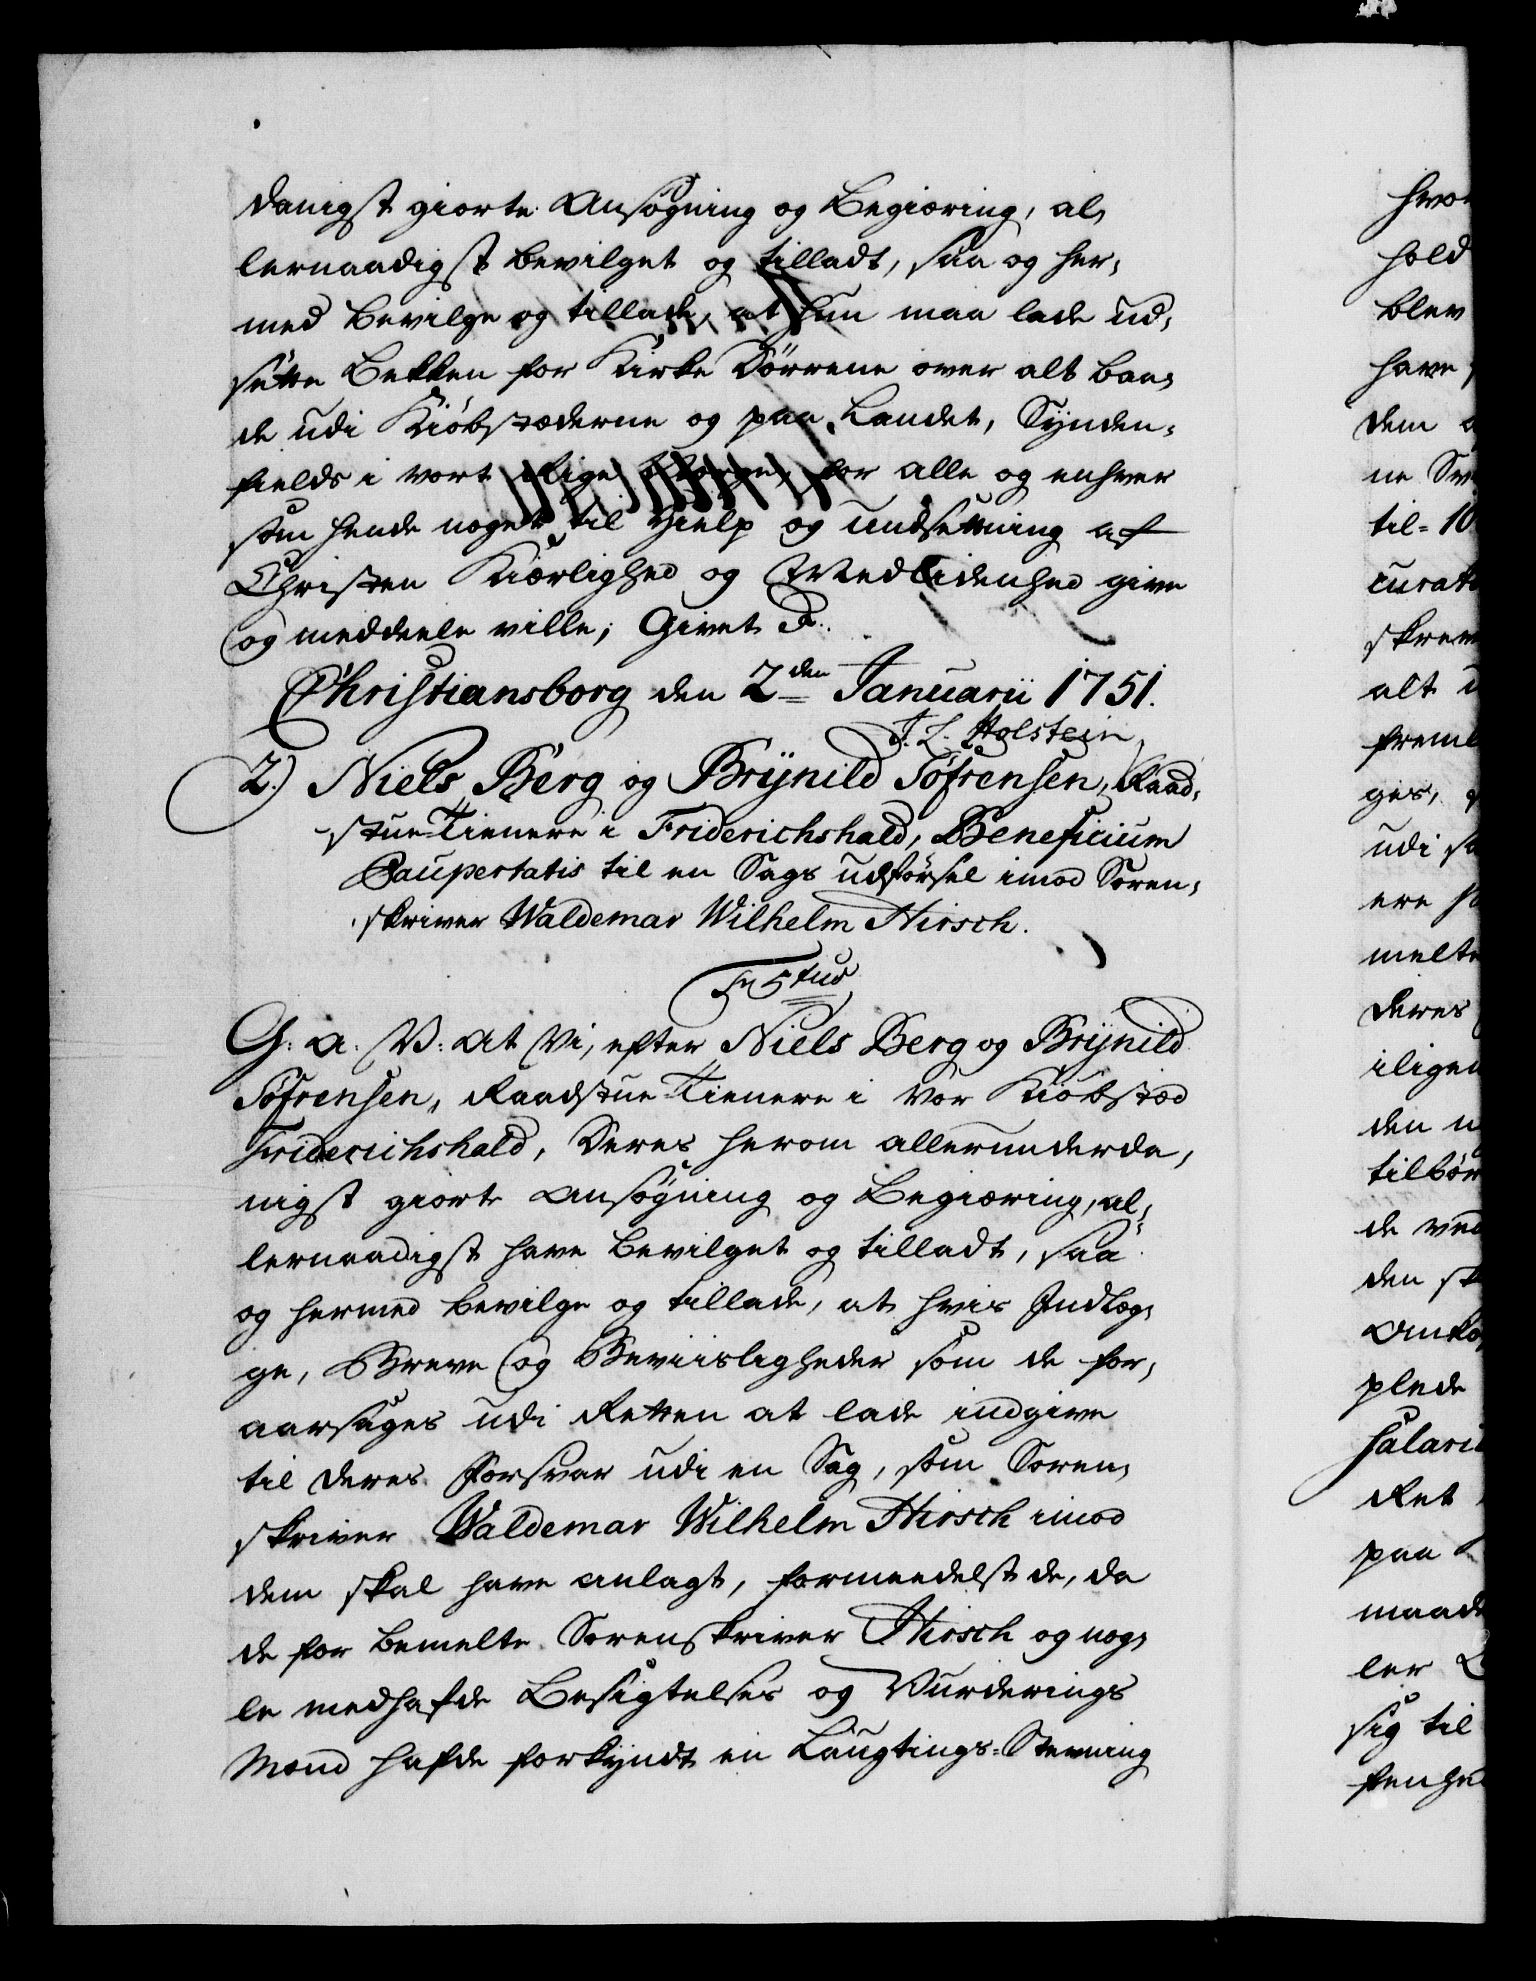 danigst giorte Ansøgning og Begiæring, al-
lernaadigst bevilget og tilladt, saa og her-
med bevilge og tillade, at hun maa lade ud-
sætte Bekken for Kirke Dörrene over alt baa-
de udi Kiöbstæderne og paa Landet, Synden-
fields i vort Rige Norge, for alle og enhver
som hende noget til Hielp og undsætning af
Christen Kiærlighed og Medlidenhed give
og meddeele ville; Givet &.
Christiansborg den 2den Januarii 1751.
J. L. Holstein
2.) Niels Berg og Brÿnild Söfrensen, Raad-
stue-Tienere i Friderichshald, Beneficium
Paupertatis til en Sags udförsel imod Soren-
skriver Waldemar Wilhelm Hirsch.
Fr 5tus
G: A. V: At Vi, efter Niels Berg og Brÿnild
Söfrensen, Raadstue-Tienere i Vor Kiöbstæd
Friderichshald, Deres herom allerunderda-
nigst giorte Ansøgning og Begiæring, al-
lernaadigst have bevilget og tilladt, saa
og hermed bevilge og tillade, at hvis Indlæg-
ge, Breve og Beviisligheder som de for-
aarsages udi Retten at lade indgive
til deres Forsvar udi en Sag, som Soren-
skriver Waldemar Wilhelm Hirsch imod
dem skal have anlagt, formeedelst de, da
de for bemelte Sorenskriver Hirsch og nog-
le medhafde Besigtelses og Vurderings
Mænd hafde forkyndt en Laugtings-Stevning
hvor
hold
blev
have
dem
ne
til 10
curat
skrev
alt
freml
ges,
udi
ere
melte
deres
iligen
den
tilbör
de ved
den
plede
Salari
Ret
paa
maade
ler
sig til